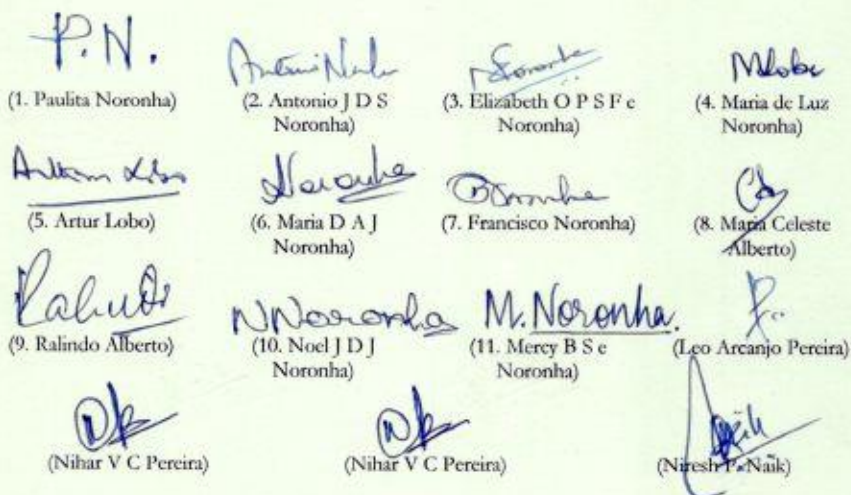 P. N.
(1. Paulita Noronha)
(2. Antonio J D S
Noronha)
Noronha
(3. Elizabeth O P S F e
Noronha)
MLobo
(4. Maria de Luz
Noronha)
Lobo
(5. Artur Lobo)
Noronha
(6. Maria D A J
Noronha)
Noronha
(7. Francisco Noronha)
(8. Maria Celeste
Alberto)
(9. Ralindo Alberto)
NNoronha
(10. Noel J D J
Noronha)
M. Noronha.
(11. Mercy B S e
Noronha)
(Leo Arcanjo Pereira)
(Nihar V C Pereira)
(Nihar V C Pereira)
Naik
(Niresh P. Naik)